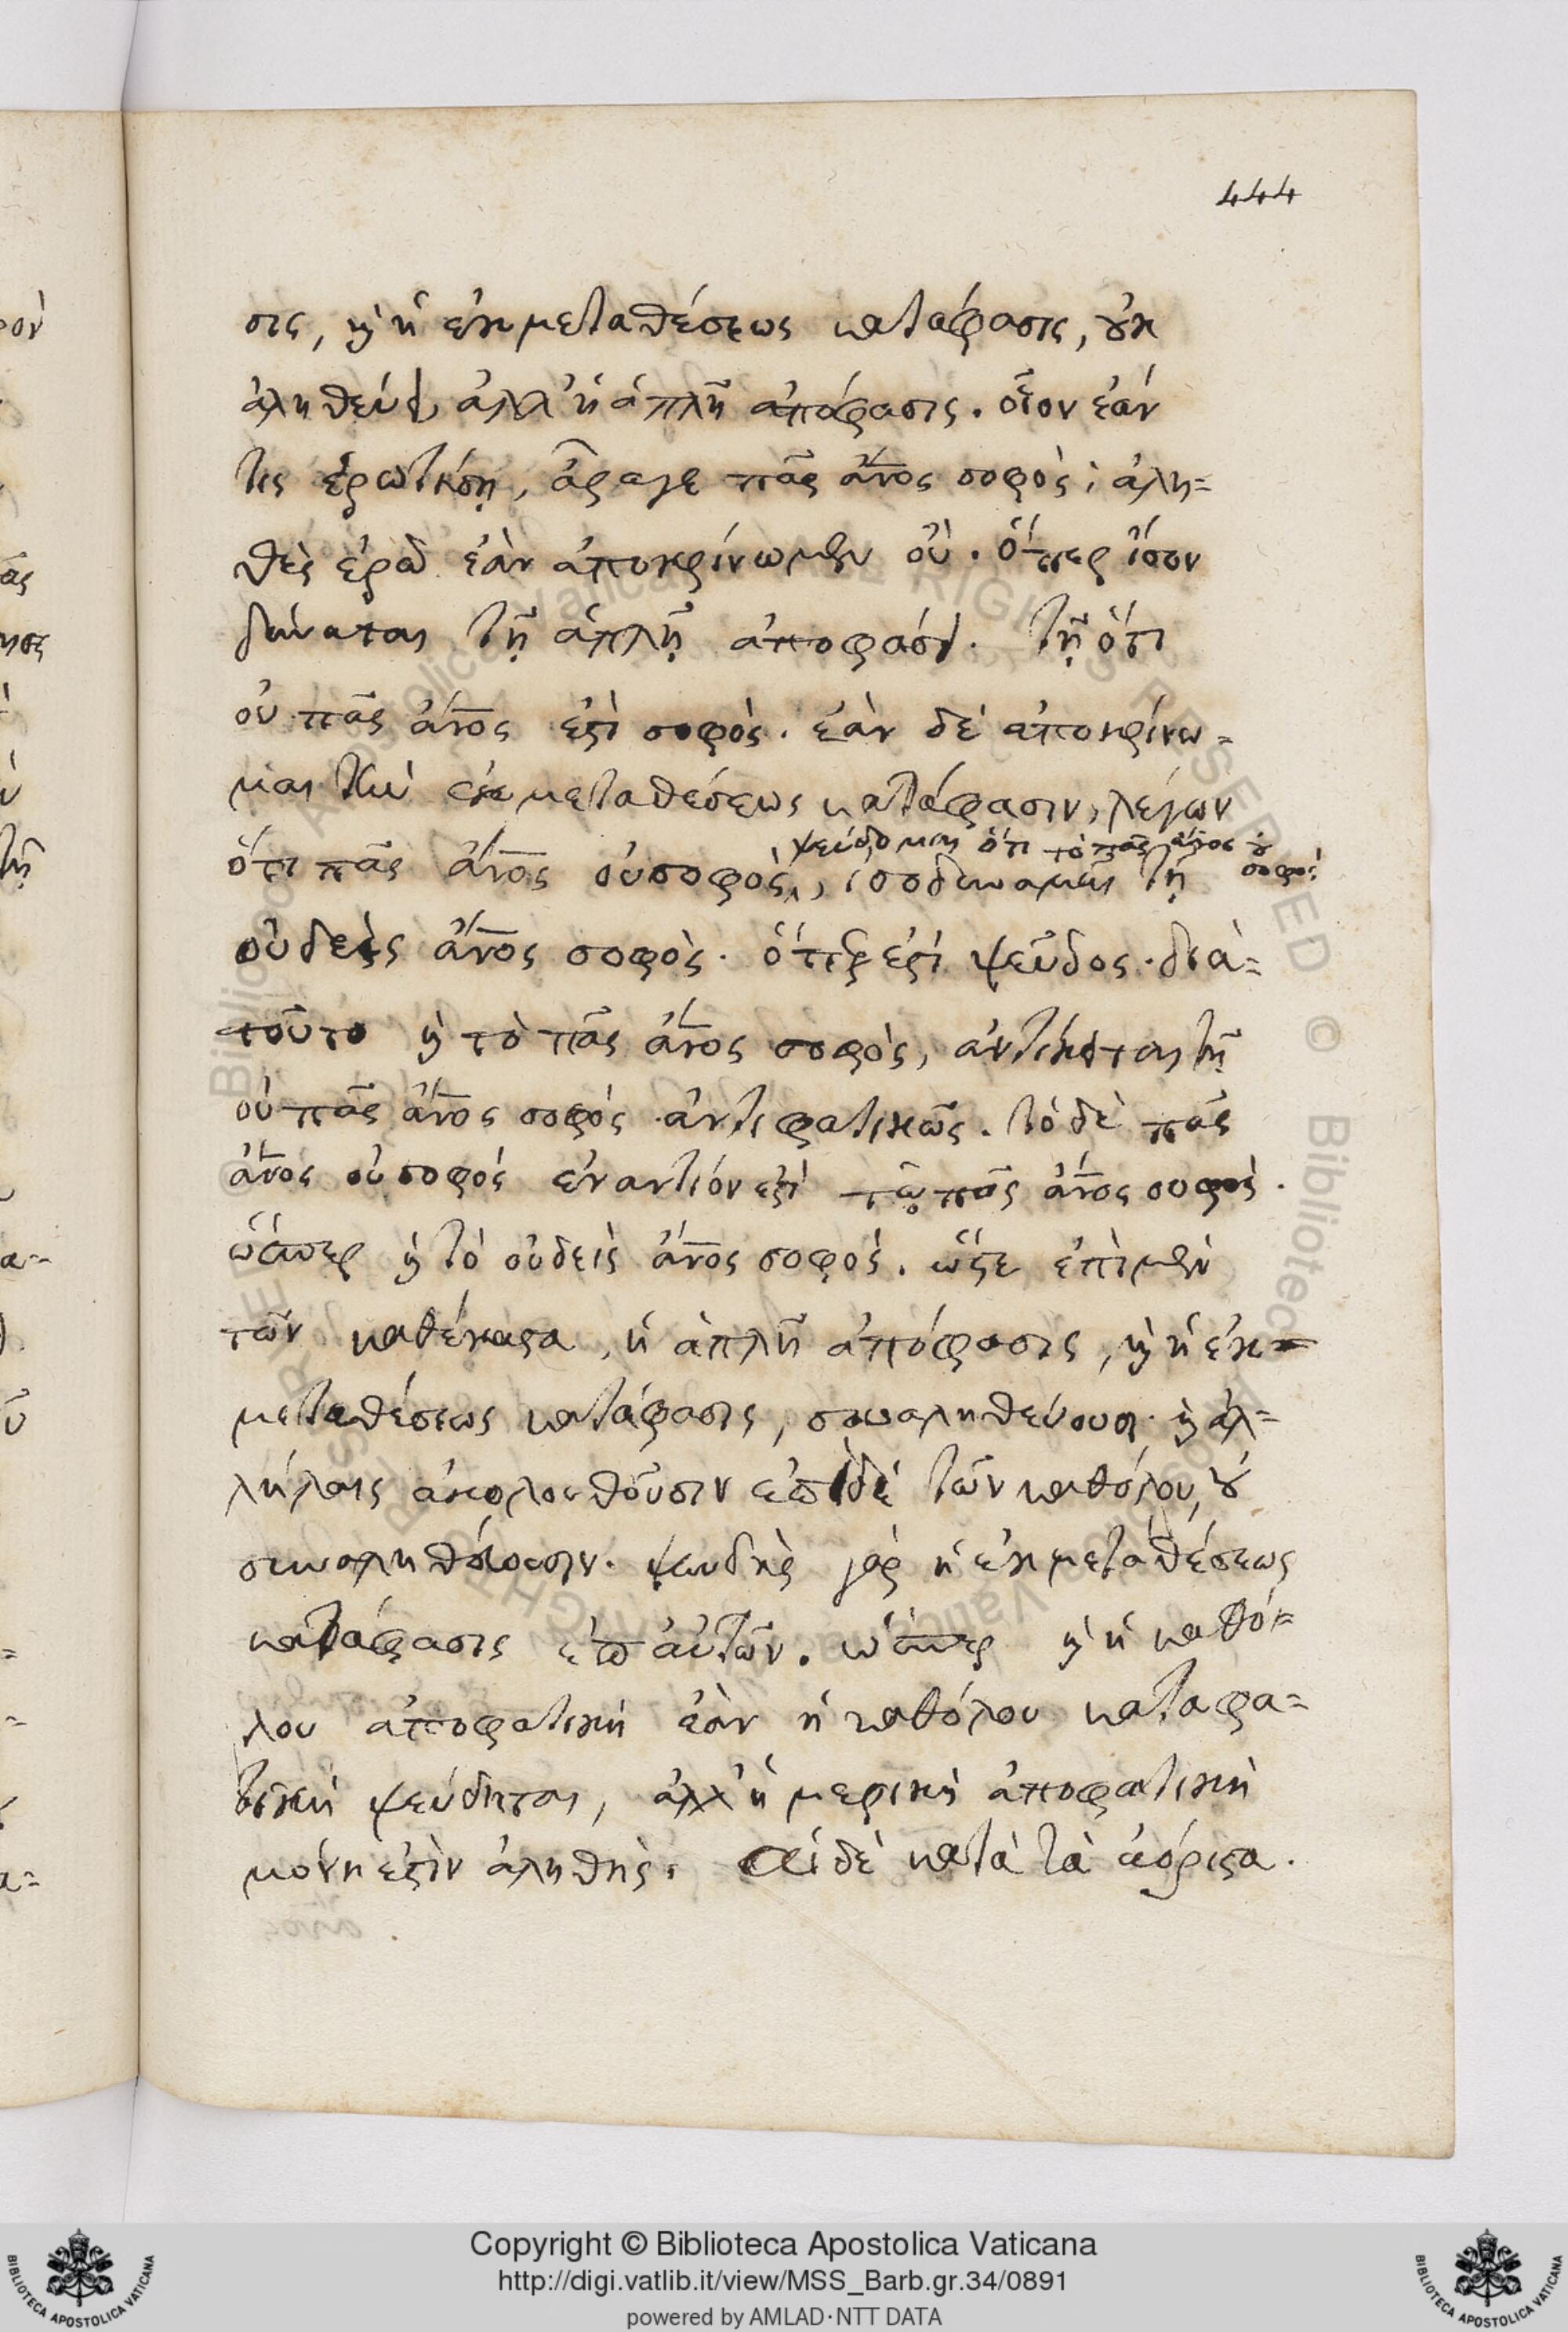 444
σις, καὶ ἡ ἐκ μεταθέσεως κατάφασις, οὐκ
ἀληθεύει, ἀλλ' ἡ ἁπλῆ ἀπόφασις. οἷον ἐάν
τις ἐρωτήσῃ, ἆραγε πᾶς ἄνος σοφὸς; ἀλη=
θὲς ἐρῶ ἐὰν ἀποκρίνωμεν οὐ. ὅπερ ἴσον
δύναται τῇ ἁπλῇ ἀποφάσει. τῇ ὅτι
οὐ πᾶς ἄνος ἐστὶ σοφὸς. ἐὰν δὲ ἀποκρίνω=
μαι τὴν ἐκ μεταθέσεως κατάφασιν, λέγων
ψεύδομαι ὅτι τὸ πᾶς ἄνος οὐ σοφὸς
ὅτι πᾶς ἄνος οὐ σοφὸς, ἰσοδυναμεῖ τῇ
οὐδεὶς ἄνος σοφὸς. ὅπερ ἐστὶ ψεῦδος. διὰ=
τοῦτο καὶ τὸ πᾶς ἄνος σοφὸς, ἀντίκειται τῇ
οὐ πᾶς ἄνος σοφός ἀντιφατικῶς. τὸ δὲ πᾶς
ἄνος οὐ σοφός ἐναντίον ἐστὶ τῷ πᾶς ἄνος σοφὸς.
ὥσπερ καὶ τὸ οὐδεὶς ἄνος σοφός. ὥστε ἐπὶ μὲν
τῶν καθέκαστα, ἡ ἁπλῆ ἀπόφασις, καὶ ἡ ἐκ
μεταθέσεως κατάφασις, συναληθεύουσι. καὶ ἀλ=
λήλαις ἀκολουθοῦσιν ἐπὶ δὲ τῶν καθόλου, οὐ
συναληθεύουσιν. ψευδὴς γὰρ ἡ ἐκ μεταθέσεως
κατάφασις ἐπ' αὐτῶν. ὥσπερ καὶ ἡ καθό=
λου ἀποφατικὴ ἐὰν ἡ καθόλου καταφα=
τικὴ ψεύδηται, ἀλλ' ἡ μερικὴ ἀποφατικὴ
μόνη ἐστὶν ἀληθὴς. Αἱ δὲ κατὰ τὰ ἀόριστα.
Copyright © Biblioteca Apostolica Vaticana
http://digi.vatlib.it/view/MSS_Barb.gr.34/0891
powered by AMLAD·NTT DATA
BIBLIOTECA APOSTOLICA VATICANA
BIBLIOTECA APOSTOLICA VATICANA